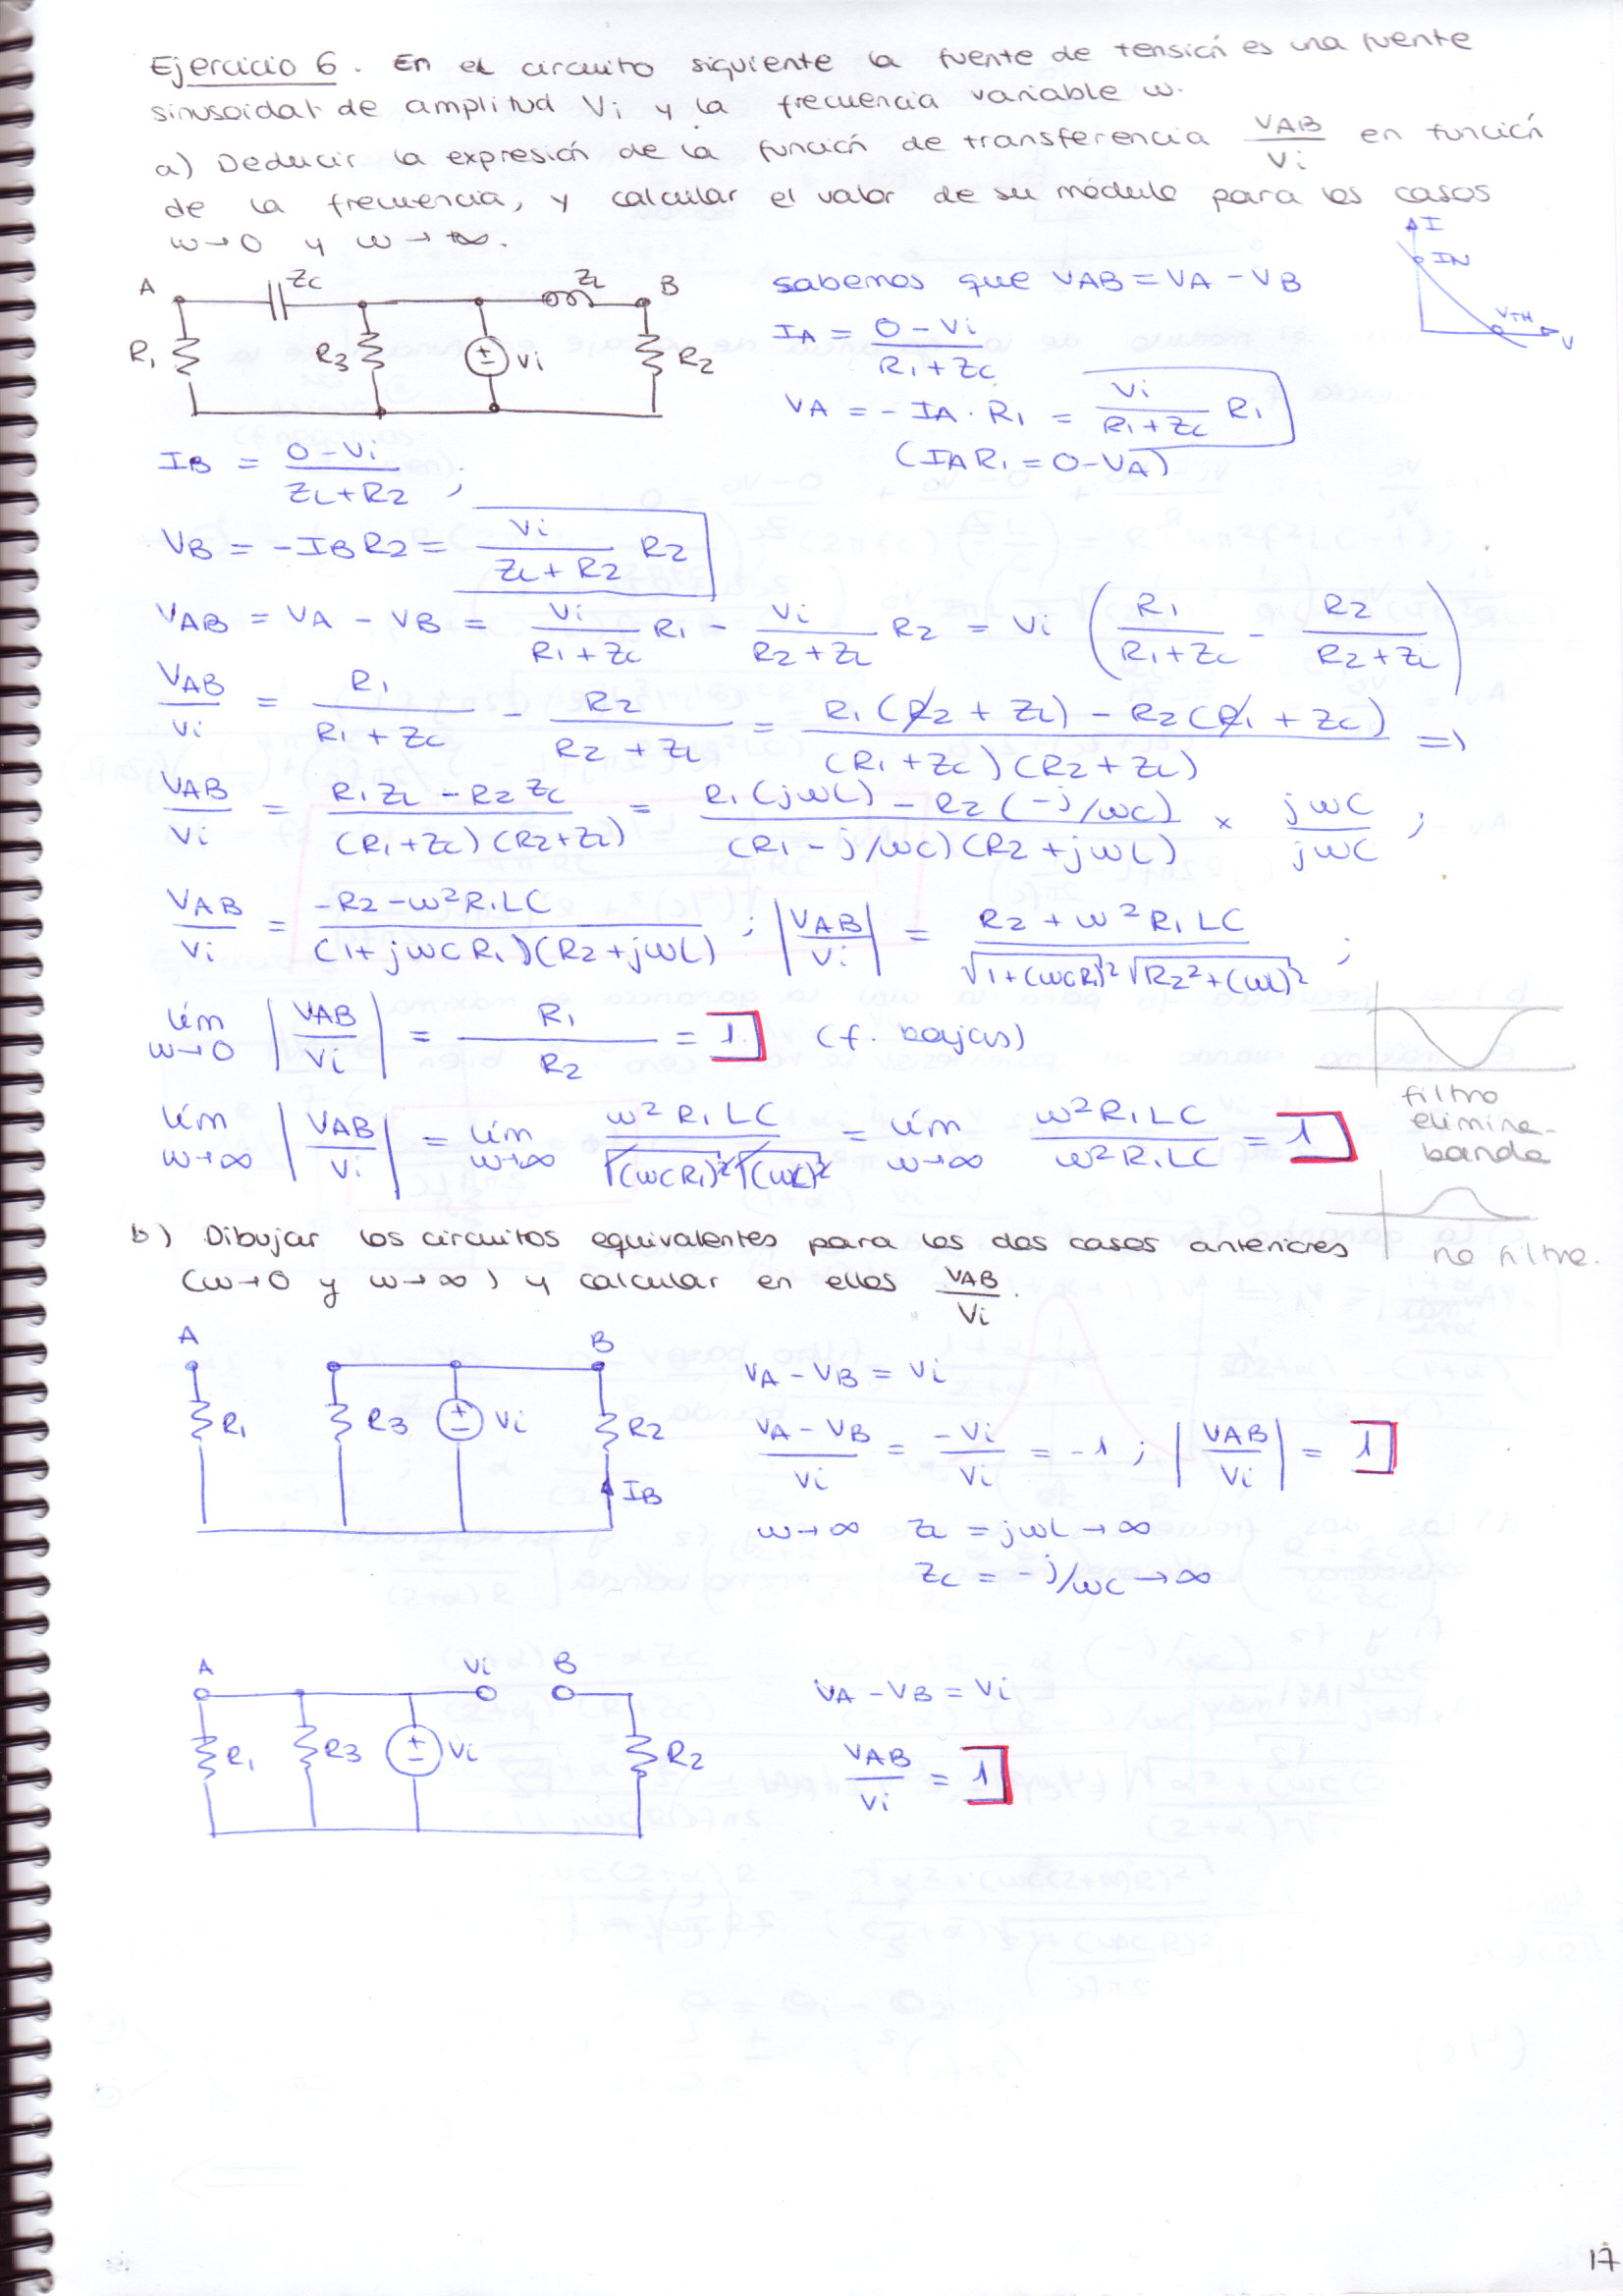 Ejercicio 6. En el circuito siguiente la fuente de tensión es una fuente
sinusoidal de amplitud Vi y la frecuencia variable ω.
a) Deducir la expresión de la función de transferencia VAB/Vi en función
de la frecuencia, y calcular el valor de su módulo para los casos
ω→0 y ω→+∞.
A Zc ZL B
R1 R3 ± Vi R2
sabemos que VAB = VA - VB
I IN VTH V
IA = (0 - Vi)/(R1 + Zc)
VA = -IA · R1 = Vi/(R1 + Zc) R1
(IA R1 = 0 - VA)
IB = (0 - Vi)/(ZL + R2) ;
VB = -IB R2 = Vi/(ZL + R2) R2
VAB = VA - VB = Vi/(R1 + Zc) R1 - Vi/(R2 + ZL) R2 = Vi (R1/(R1 + Zc) - R2/(R2 + ZL))
VAB/Vi = R1/(R1 + Zc) - R2/(R2 + ZL) = (R1(R2 + ZL) - R2(R1 + Zc))/((R1 + Zc)(R2 + ZL)) =>
VAB/Vi = (R1 ZL - R2 Zc)/((R1 + Zc)(R2 + ZL)) = (R1(jωL) - R2(-j/ωC))/((R1 - j/ωC)(R2 + jωL)) × jωC/jωC ;
VAB/Vi = (-R2 - ω²R1LC)/((1 + jωCR1)(R2 + jωL)) ; |VAB/Vi| = (R2 + ω²R1LC)/(√1+(ωCR1)² √R2²+(ωL)²) ;
lím ω→0 |VAB/Vi| = R1/R2 = 1 (f. bajas)
lím ω→∞ |VAB/Vi| = lím ω→∞ ω²R1LC/(√(ωCR1)² √(ωL)²) = lím ω→∞ ω²R1LC/ω²R1LC = 1
filtro
elimina-
banda
no filtro.
b) Dibujar los circuitos equivalentes para los dos casos anteriores
(ω→0 y ω→∞) y calcular en ellos VAB/Vi.
A B
R1 R3 ± Vi R2
IB
VA - VB = Vi
(VA - VB)/Vi = -Vi/Vi = -1 ; |VAB/Vi| = 1
ω→∞ ZL = jωL→∞
Zc = -j/ωC→∞
A Vi B
R1 R3 ± Vi R2
VA - VB = Vi
VAB/Vi = 1
17